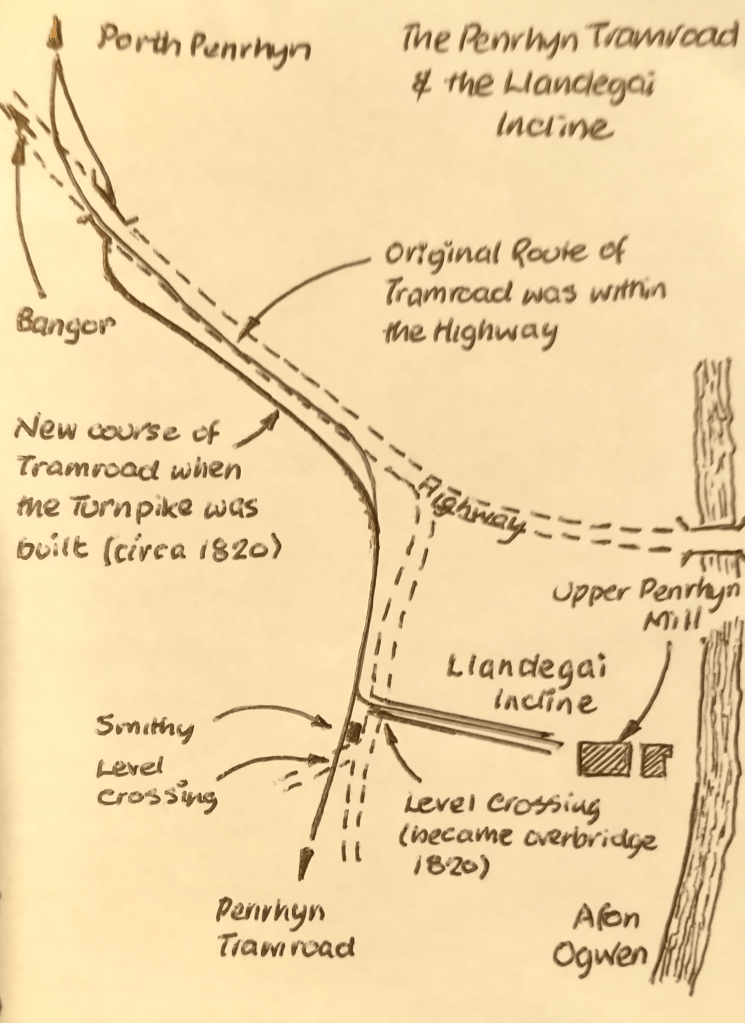 Porth Penrhyn
The Penrhyn Tramroad
& the Llandegai
Incline
Original Route of
Tramroad was within
the Highway
Bangor
New course of
Tramroad when
the Turnpike was
built (circa 1820)
Highway
Upper Penrhyn
Mill
Llandegai
Incline
Smithy
Level
Crossing
Level Crossing
(became overbridge
1820)
Penrhyn
Tramroad
Afon
Ogwen